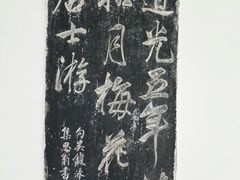 道光五年
松月梅花
居士游
句吴钱泳
集思翁书